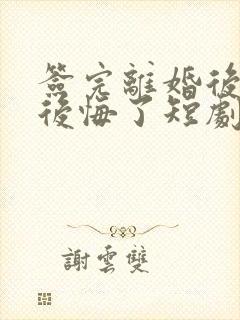 簽完離婚後
後悔了短劇
謝雲雙